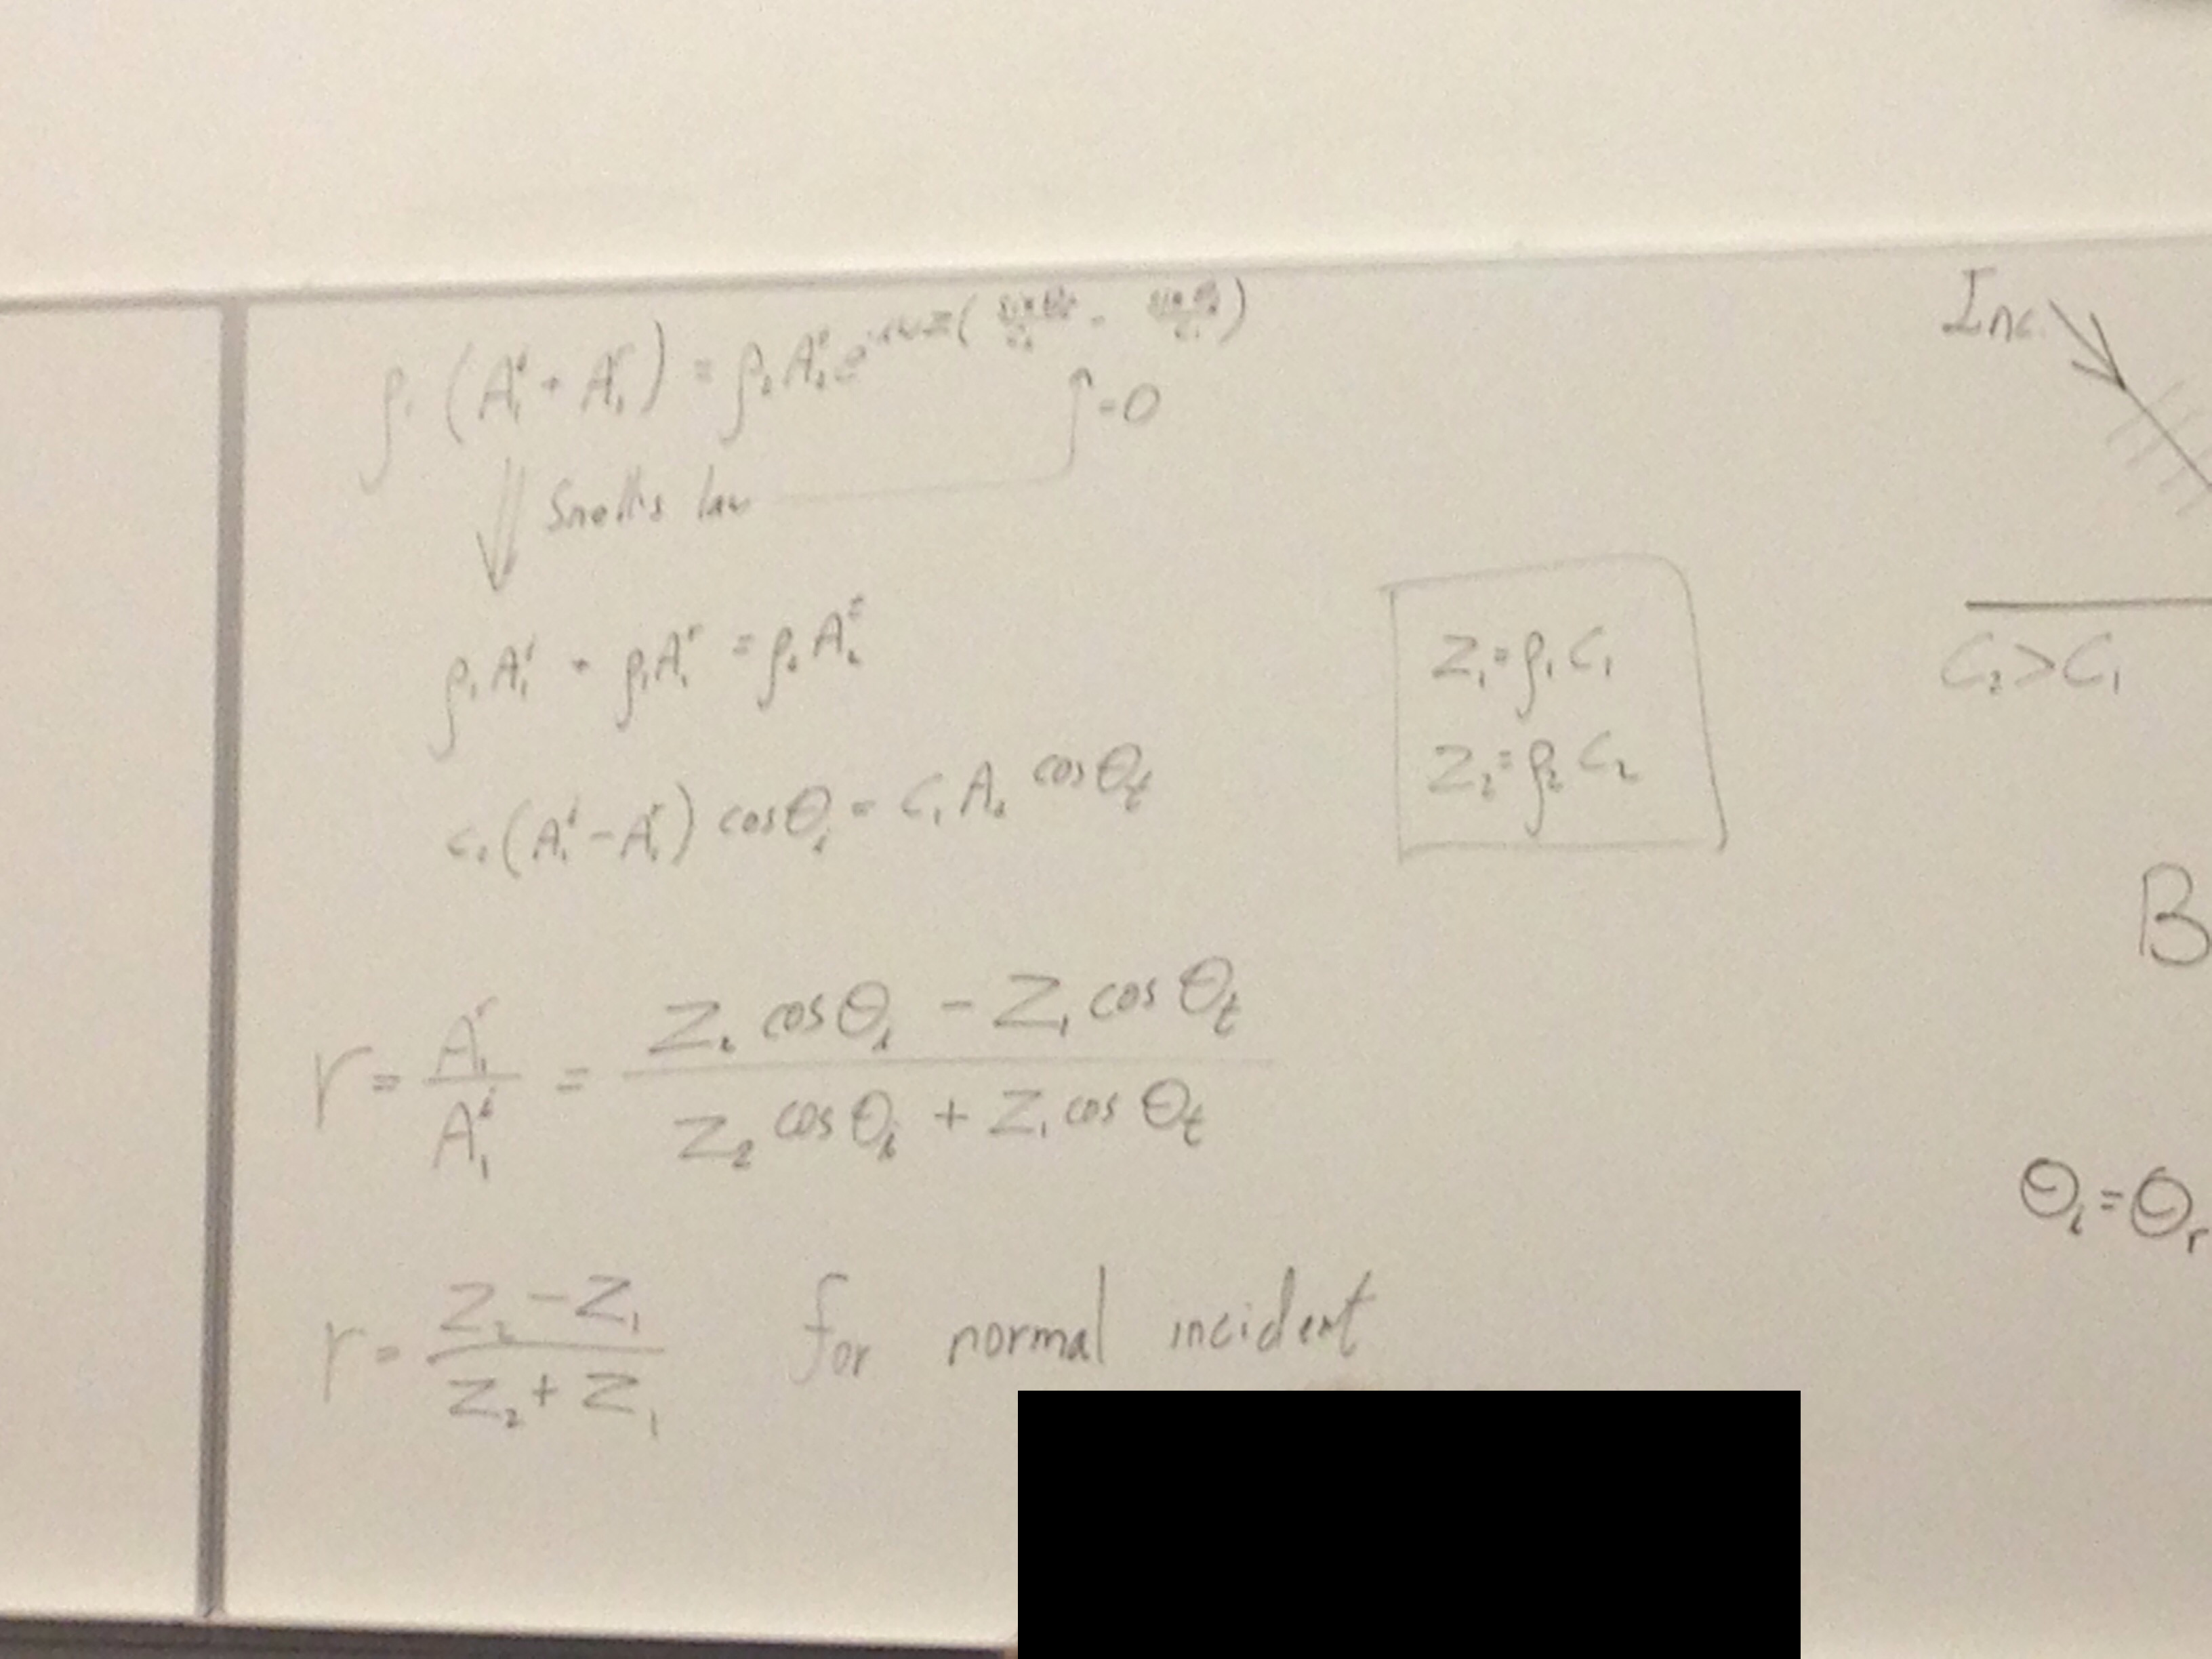 ρ₁ (A₁ⁱ + A₁ʳ) = ρ₂ A₂ᵗ e^{-iωx( sin θt / c₂ - sin θi / c₁ )}
↑ = 0
⇓ Snell's law
ρ₁ A₁ⁱ + ρ₁ A₁ʳ = ρ₂ A₂ᵗ
c₂ (A₁ⁱ - A₁ʳ) cos θᵢ = c₁ A₂ cos θₜ
r = A₁ʳ / A₁ⁱ = (Z₂ cos θᵢ - Z₁ cos θₜ) / (Z₂ cos θᵢ + Z₁ cos θₜ)
r = (Z₂ - Z₁) / (Z₂ + Z₁) for normal incident
Z₁ = ρ₁ C₁
Z₂ = ρ₂ C₂
Inc.
C₂ > C₁
B
θᵢ = θᵣ